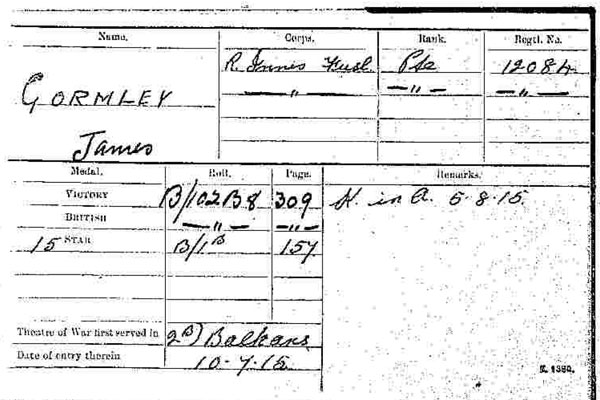 Name. Corps. Rank. Regtl. No.
GORMLEY R. Innis Fusl Pte 12084
—"— —"— —"—
James
Medal. Roll. Page. Remarks.
VICTORY B/102B8 309 K. in A. 5.8.15.
BRITISH —"— —"—
15 STAR B/1B 157
Theatre of War first served in (2B) Balkans
Date of entry therein 10.7.15
K. 1380.